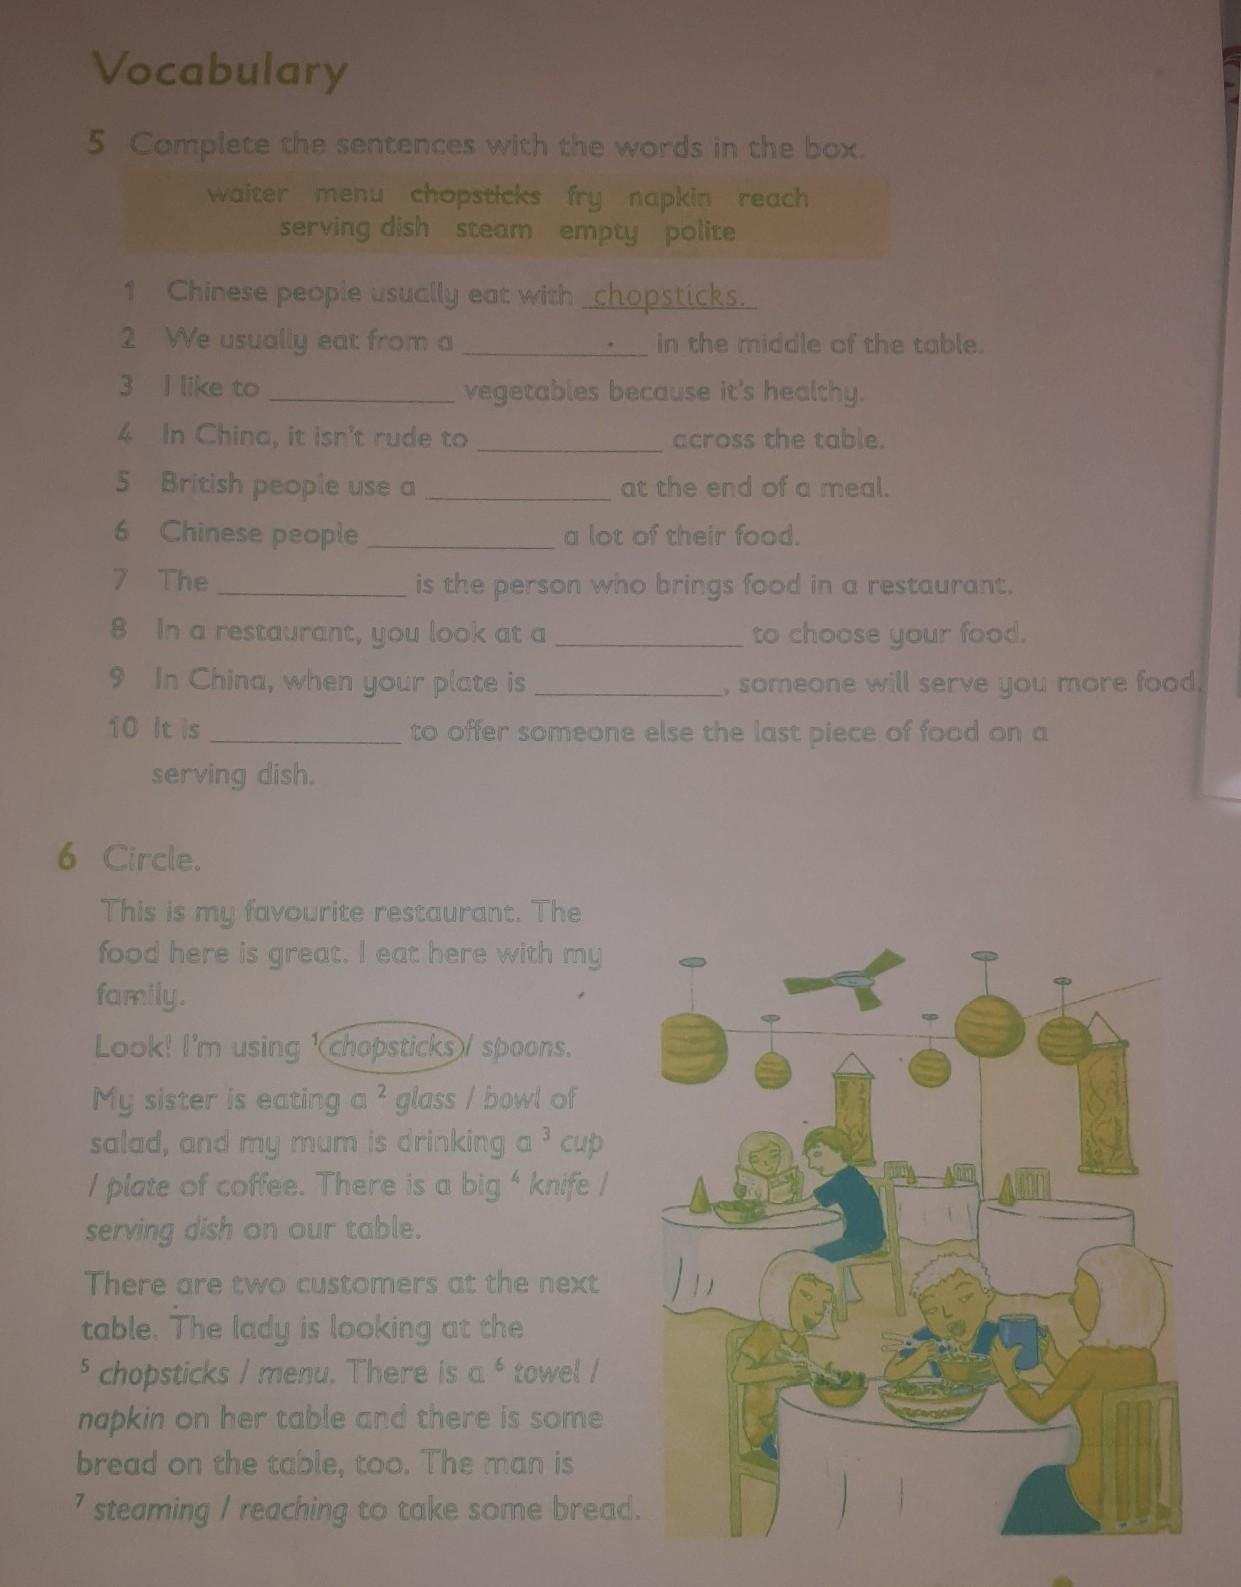 Vocabulary
5 Complete the sentences with the words in the box.
waiter menu chopsticks fry napkin reach
serving dish steam empty polite
1 Chinese people usually eat with chopsticks.
2 We usually eat from a ____________ in the middle of the table.
3 I like to ____________ vegetables because it's healthy.
4 In China, it isn't rude to ____________ across the table.
5 British people use a ____________ at the end of a meal.
6 Chinese people ____________ a lot of their food.
7 The ____________ is the person who brings food in a restaurant.
8 In a restaurant, you look at a ____________ to choose your food.
9 In China, when your plate is ____________, someone will serve you more food.
10 It is ____________ to offer someone else the last piece of food on a
serving dish.
6 Circle.
This is my favourite restaurant. The
food here is great. I eat here with my
family.
Look! I'm using ¹ chopsticks / spoons.
My sister is eating a ² glass / bowl of
salad, and my mum is drinking a ³ cup
/ plate of coffee. There is a big ⁴ knife /
serving dish on our table.
There are two customers at the next
table. The lady is looking at the
⁵ chopsticks / menu. There is a ⁶ towel /
napkin on her table and there is some
bread on the table, too. The man is
⁷ steaming / reaching to take some bread.